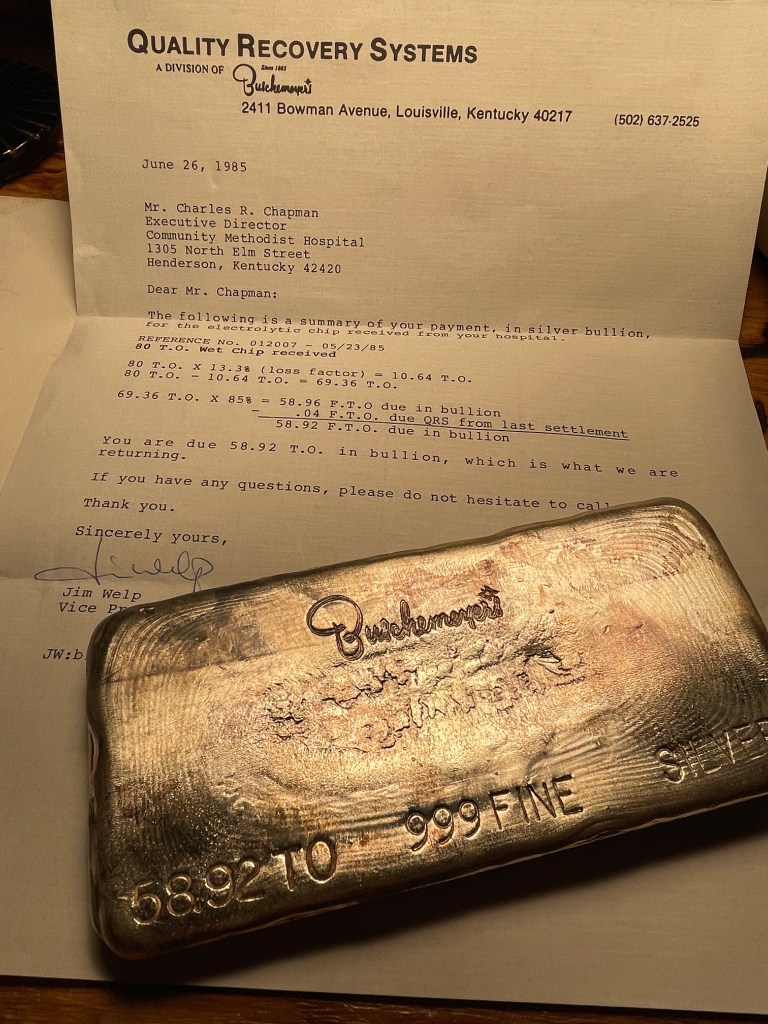 QUALITY RECOVERY SYSTEMS
Since 1865
A DIVISION OF Buschemeyer's
2411 Bowman Avenue, Louisville, Kentucky 40217 (502) 637-2525
June 26, 1985
Mr. Charles R. Chapman
Executive Director
Community Methodist Hospital
1305 North Elm Street
Henderson, Kentucky 42420
Dear Mr. Chapman:
The following is a summary of your payment, in silver bullion,
for the electrolytic chip received from your hospital.
REFERENCE No. 012007 - 05/23/85
80 T.O. Wet Chip received
80 T.O. X 13.3% (loss factor) = 10.64 T.O.
80 T.O. - 10.64 T.O. = 69.36 T.O.
69.36 T.O. X 85% = 58.96 F.T.O due in bullion
- .04 F.T.O. due QRS from last settlement
58.92 F.T.O. due in bullion
You are due 58.92 T.O. in bullion, which is what we are
returning.
If you have any questions, please do not hesitate to call
Thank you.
Sincerely yours,
Jim Welp
Jim Welp
Vice Pr
JW:b
Buschemeyer's
58.92 TO 999 FINE SILVER